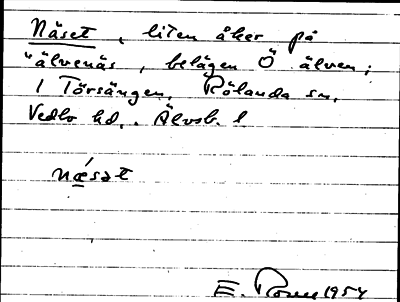 Näset, liten åker på
"älvenäs, belägen Ö älven;
i Törsängen. Rölanda sn.
Vedbo hd., Älvsb. l
nǽsət
E. 1954